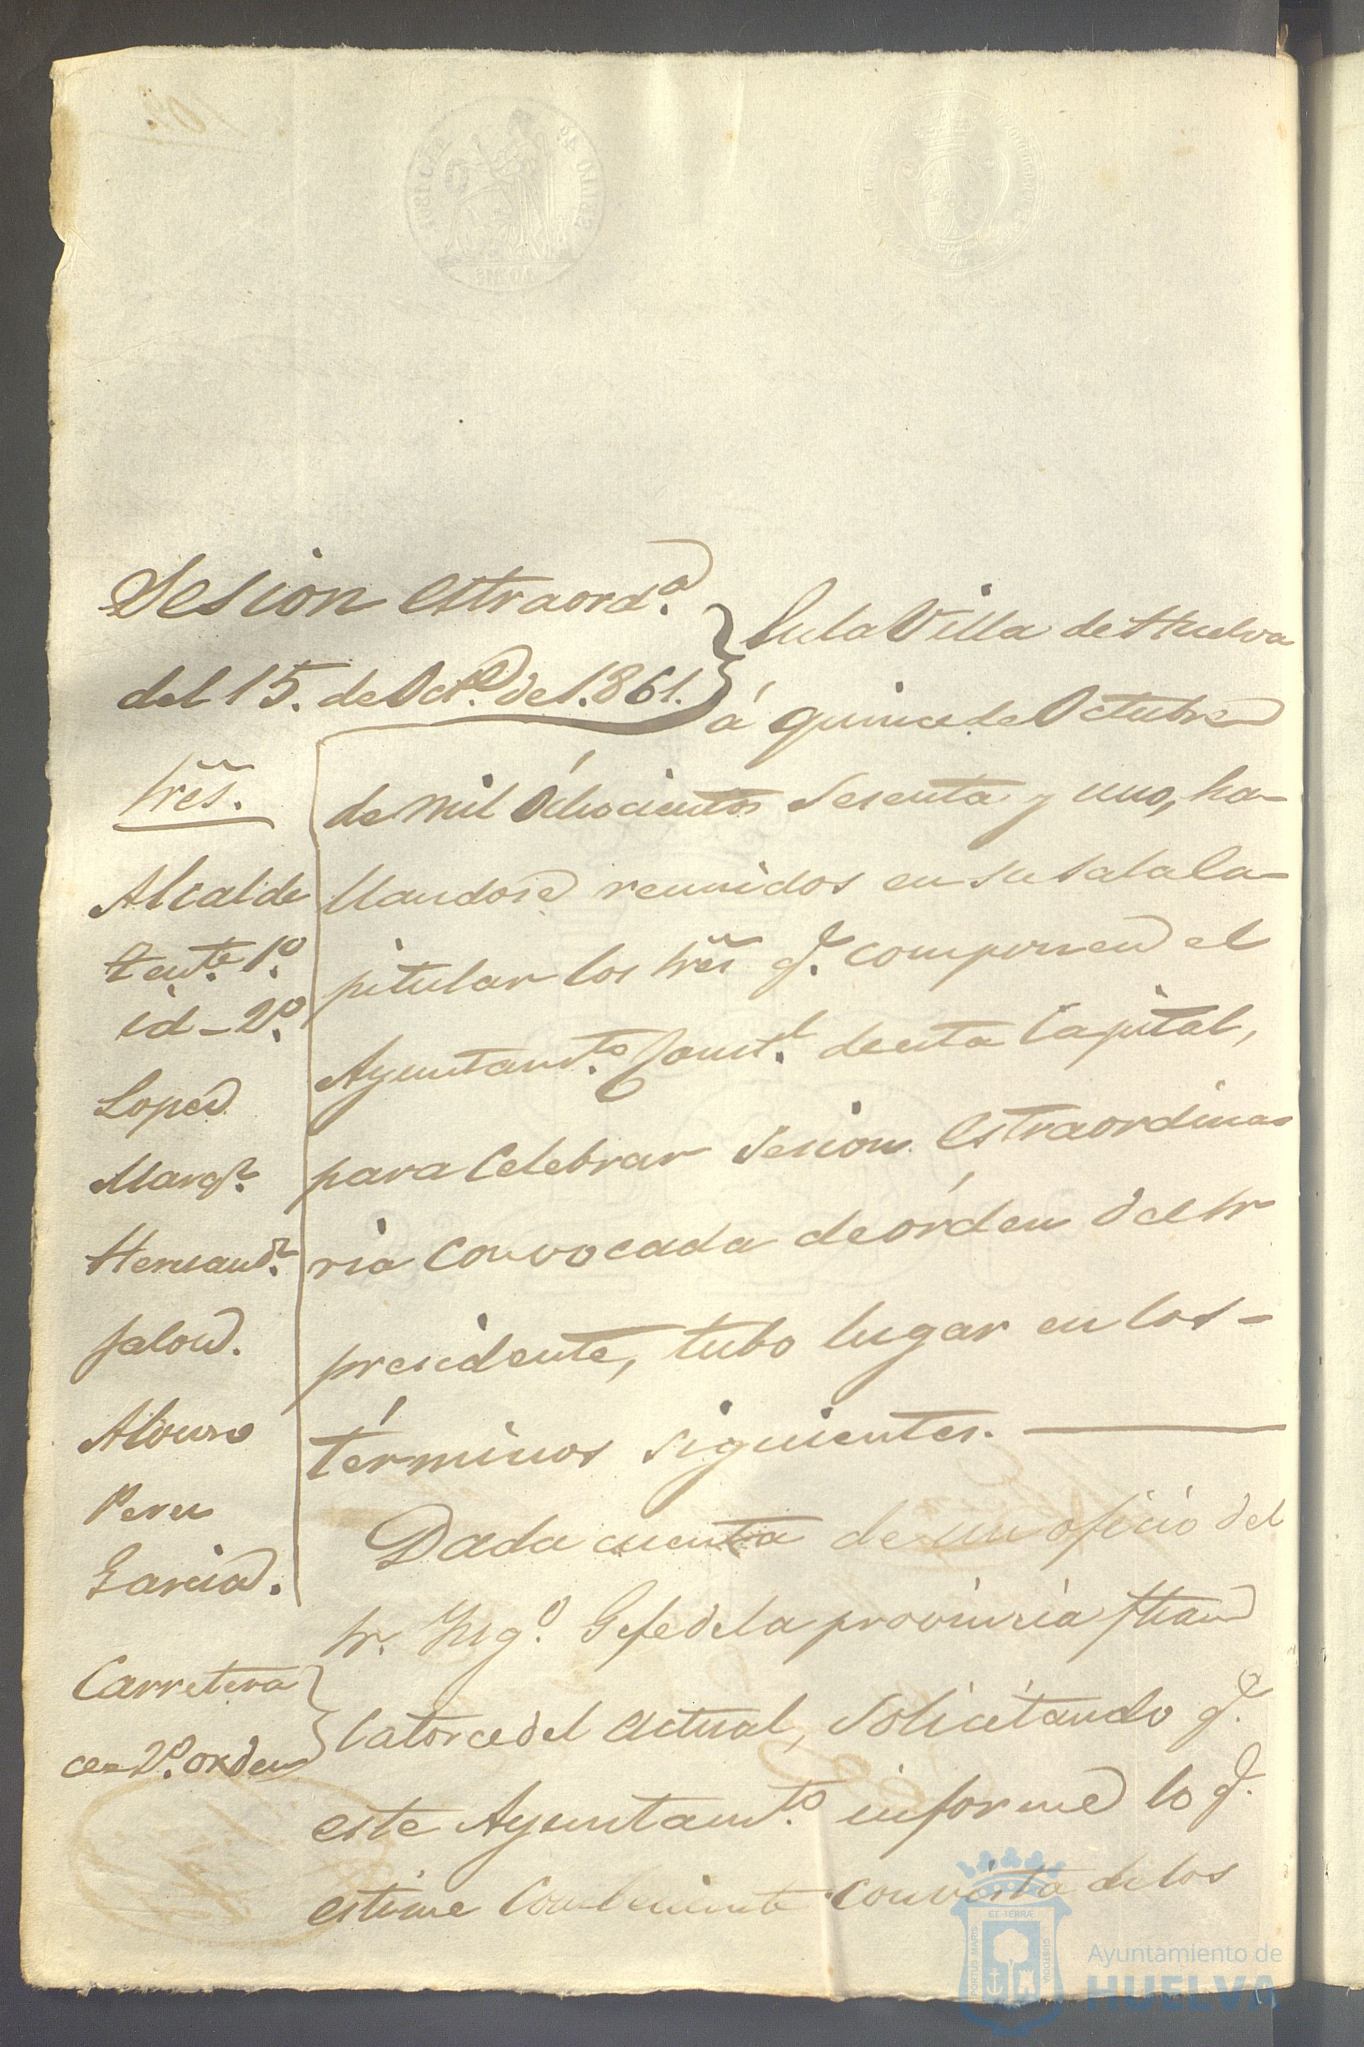 Sesion estraord.ª
del 15. de Oct.e de 1.861.
Sres.
Alcalde
Tente. 1.º
id - 2.º
Lopez
Marqz.
Hernandz.
Jalon.
Alonso
Perez
Garcia.
En la Villa de Huelva
á quince de Octubre
de mil Ochocientos Sesenta y uno, ha-
llandose reunidos en su Sala Ca-
pitular los Sres q.e componen el
Ayuntamt.o Const.l de esta Capital,
para Celebrar Sesion estraordina-
ria convocada de órden del Sr
presidente, tubo lugar en los -
términos siguientes.
Carretera
de 2.º orden
Dada cuenta de un oficio del
Sr. Ing.o Gefe de la provincia fha
Catorce del actual, solicitando q.e
este Ayuntamt.o informe lo q.e
estime Combeniente con vista de los
PORTUS MARIS
ET TERRÆ
CUSTODIA
Ayuntamiento de
HUELVA